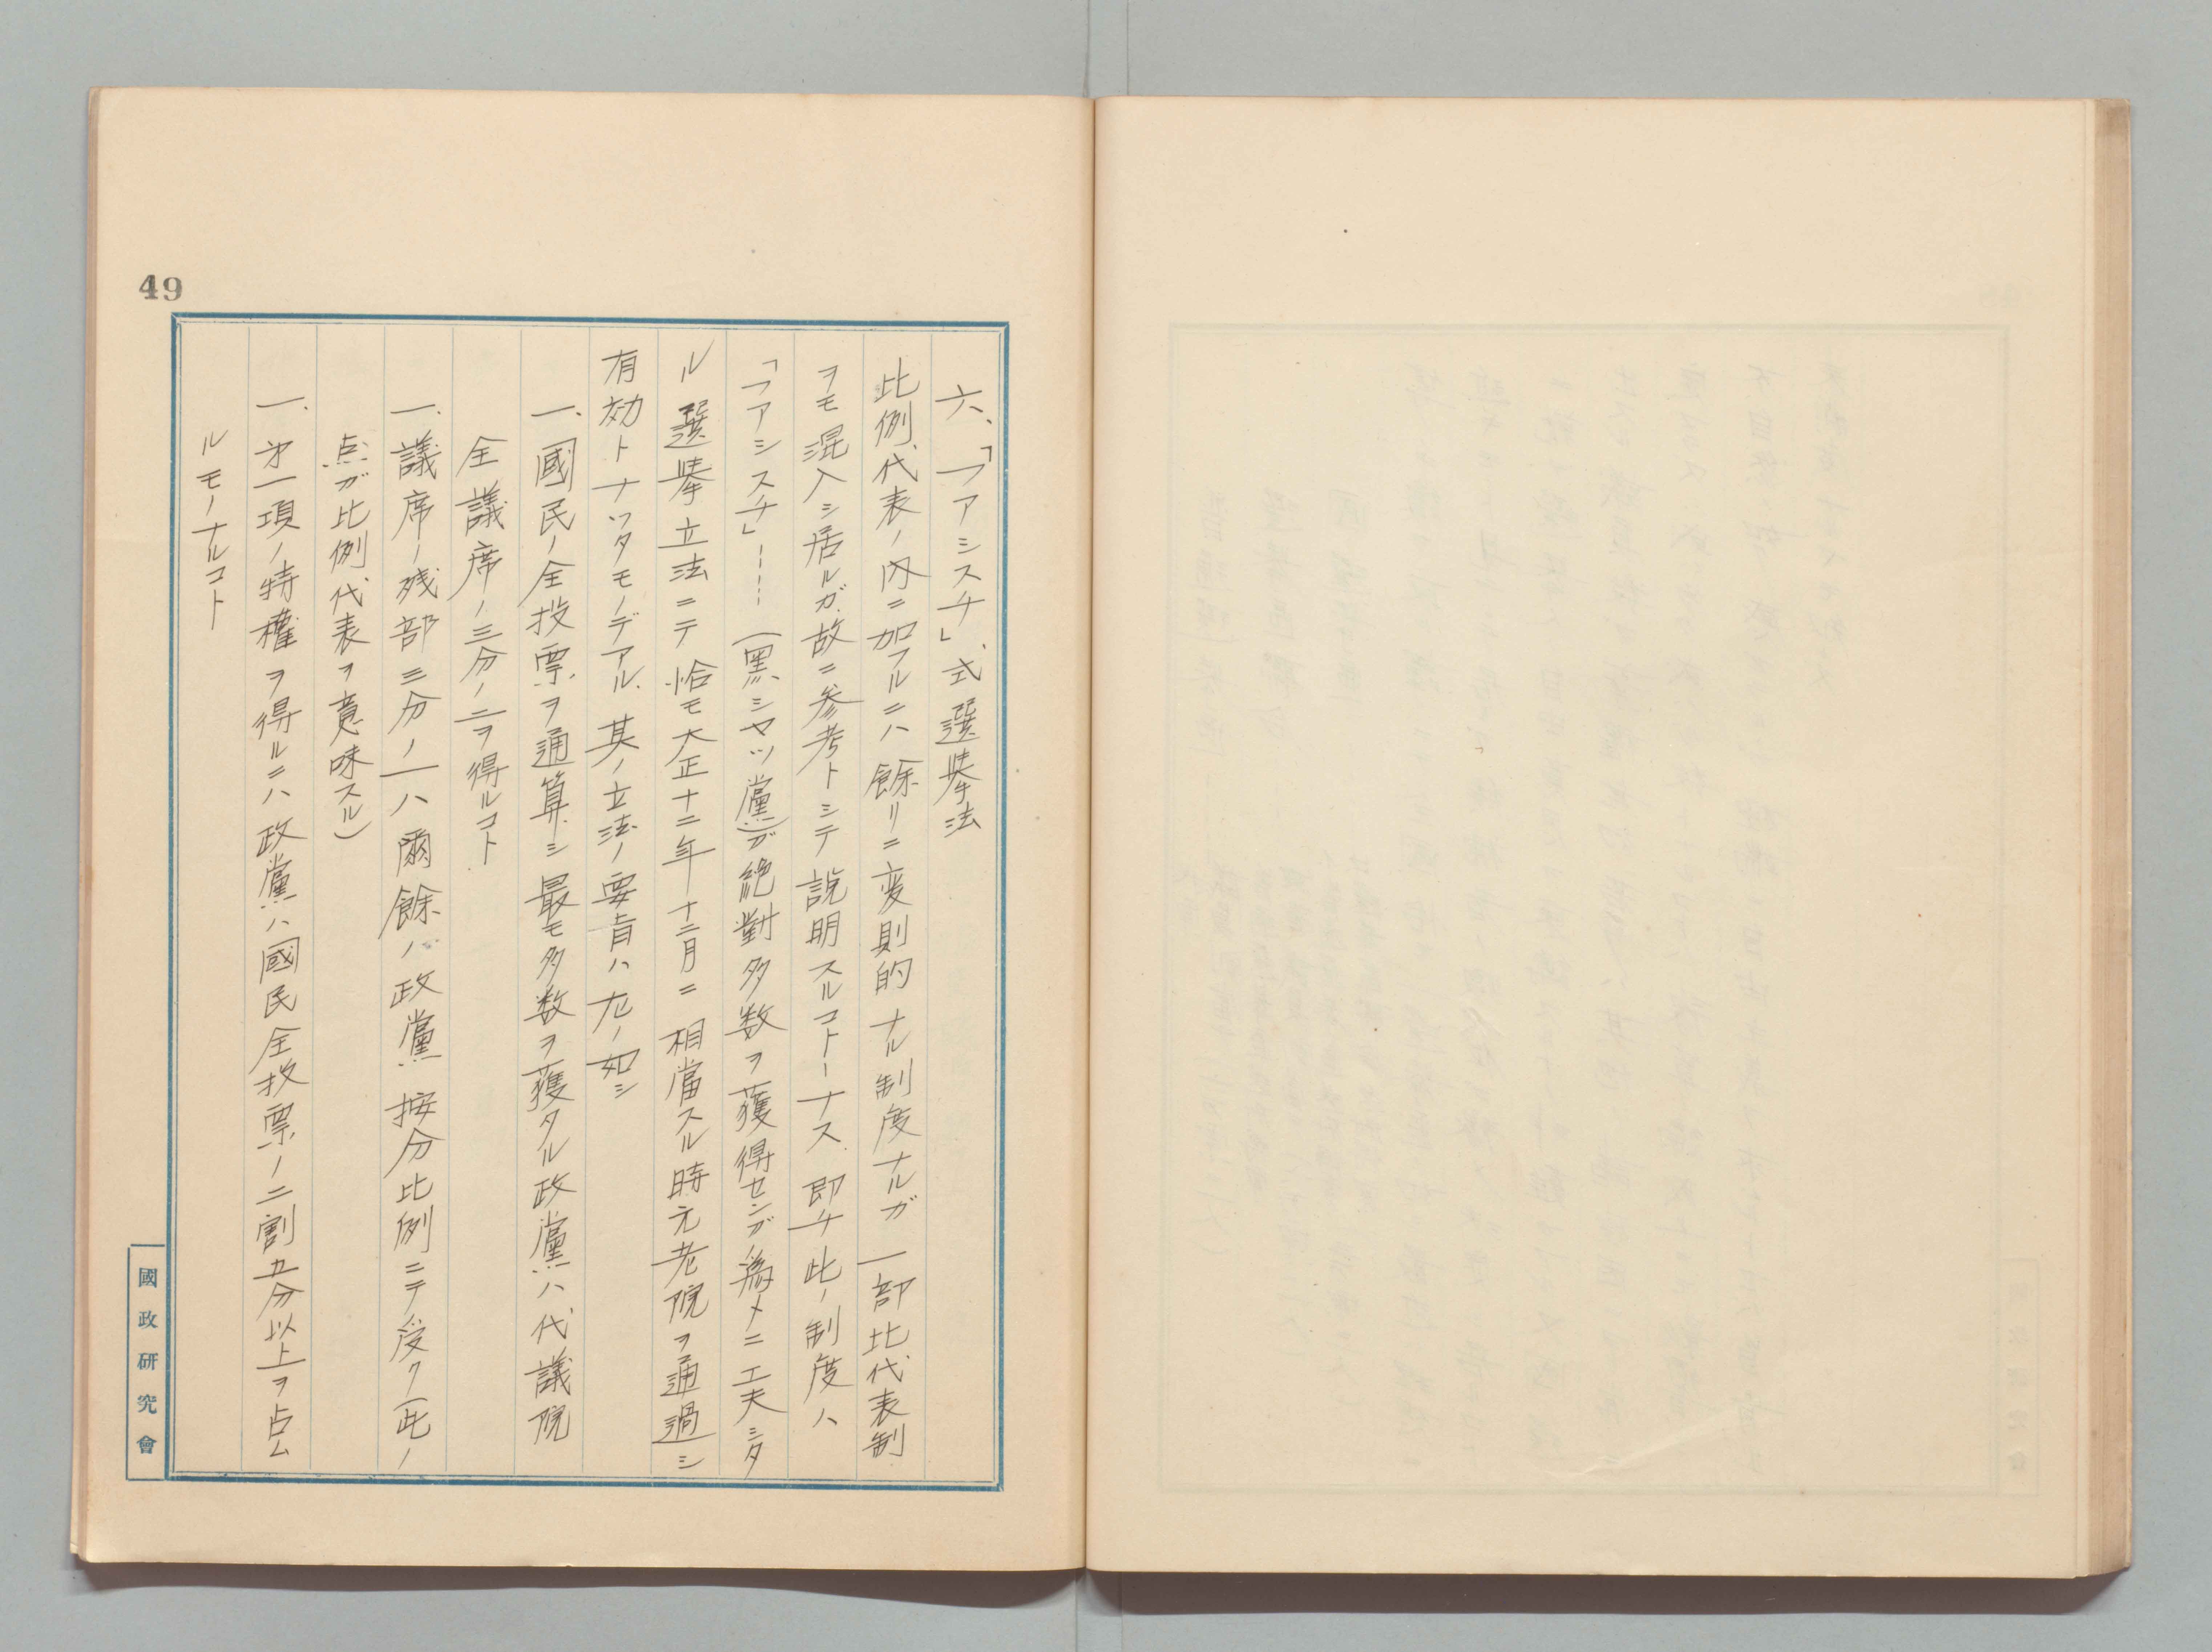 49
六、「フアシスチ」式選挙法
比例代表ノ内ニ加フルニハ餘リニ変則的ナル制度ナルガ一部比代表制
ヲモ混入シ居ルガ故ニ参考トシテ説明スルコトーナス即チ此ノ制度ハ
「フアシスチ」……(黒シヤツ黨)ガ絶對多数ヲ獲得センガ為メニ工夫シタ
ル選挙立法ニテ恰モ大正十二年十二月ニ相當スル時元老院ヲ通過シ
有効トナツタモノデアル、其ノ立法ノ要旨ハ左ノ如シ
一、國民ノ全投票ヲ通算シ最モ多数ヲ獲タル政黨ハ代議院
全議席ノ三分ノ二ヲ得ルコト
一、議席ノ残部三分ノ一ハ爾餘ノ政黨按分比例ニテ受ク(此ノ
点ガ比例代表ヲ意味スル)
一、第一項ノ特權ヲ得ルニハ政黨ハ國民全投票ノ二割五分以上ヲ占ム
ルモノナルコト
國政研究會